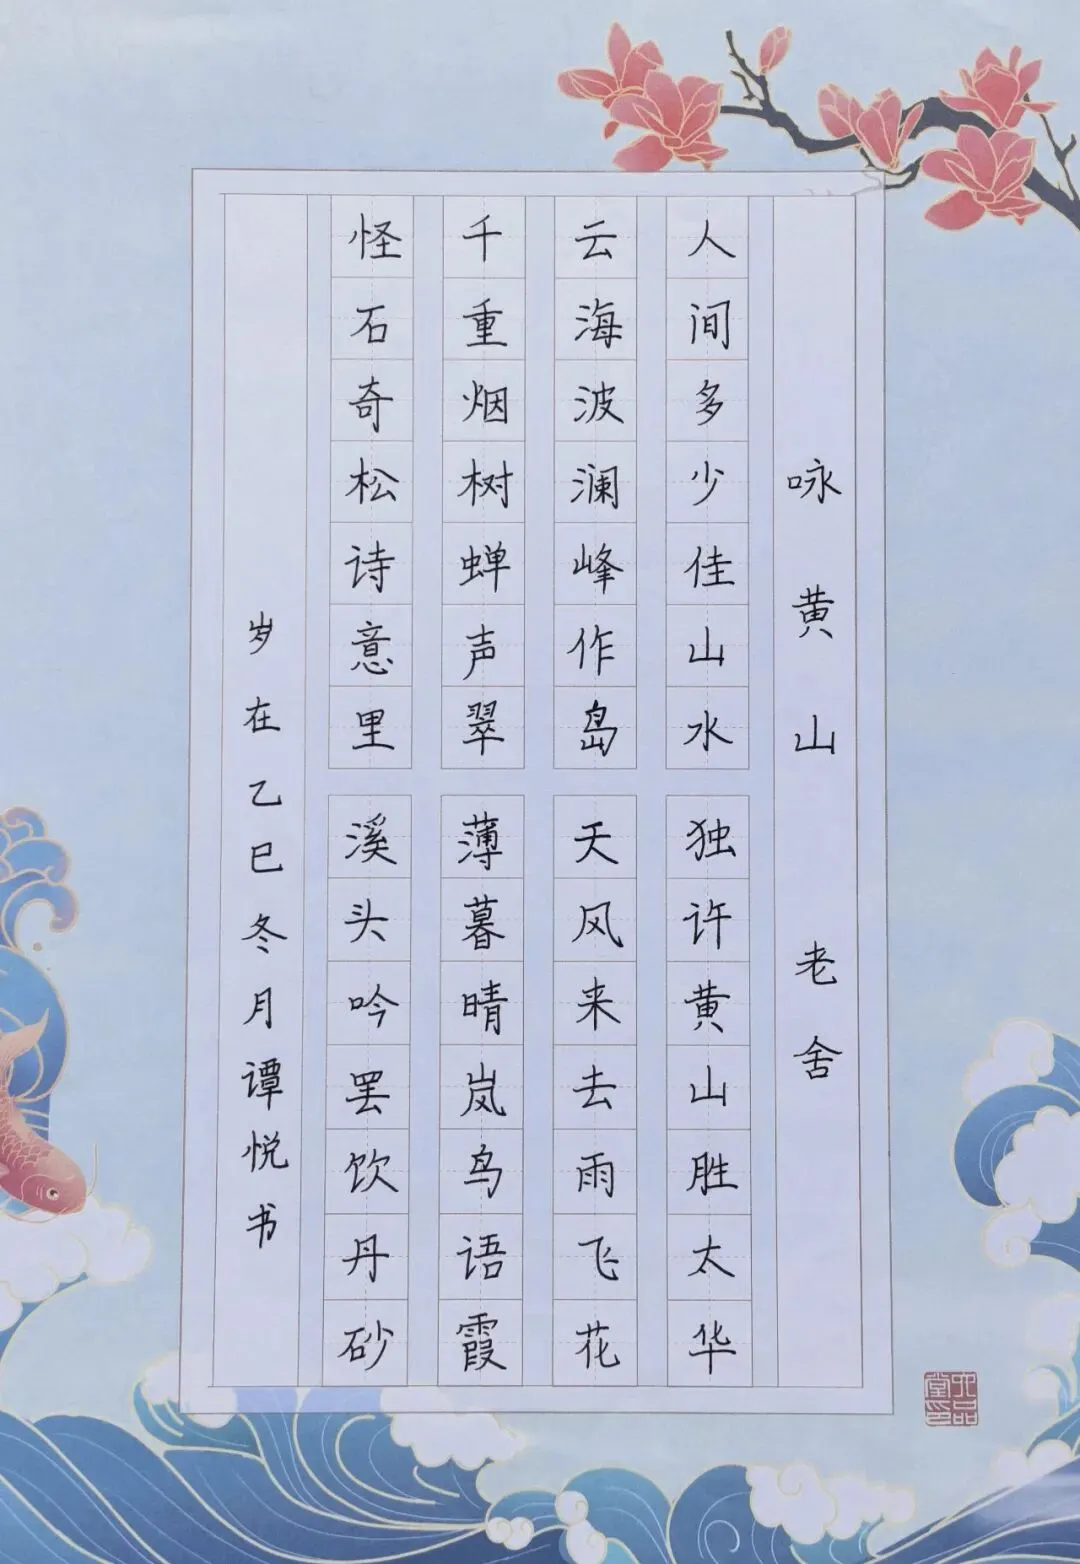 咏黄山 老舍
人间多少佳山水 独许黄山胜太华
云海波澜峰作岛 天风来去雨飞花
千重烟树蝉声翠 薄暮晴岚鸟语霞
怪石奇松诗意里 溪头吟罢饮丹砂
岁在乙巳冬月谭悦书